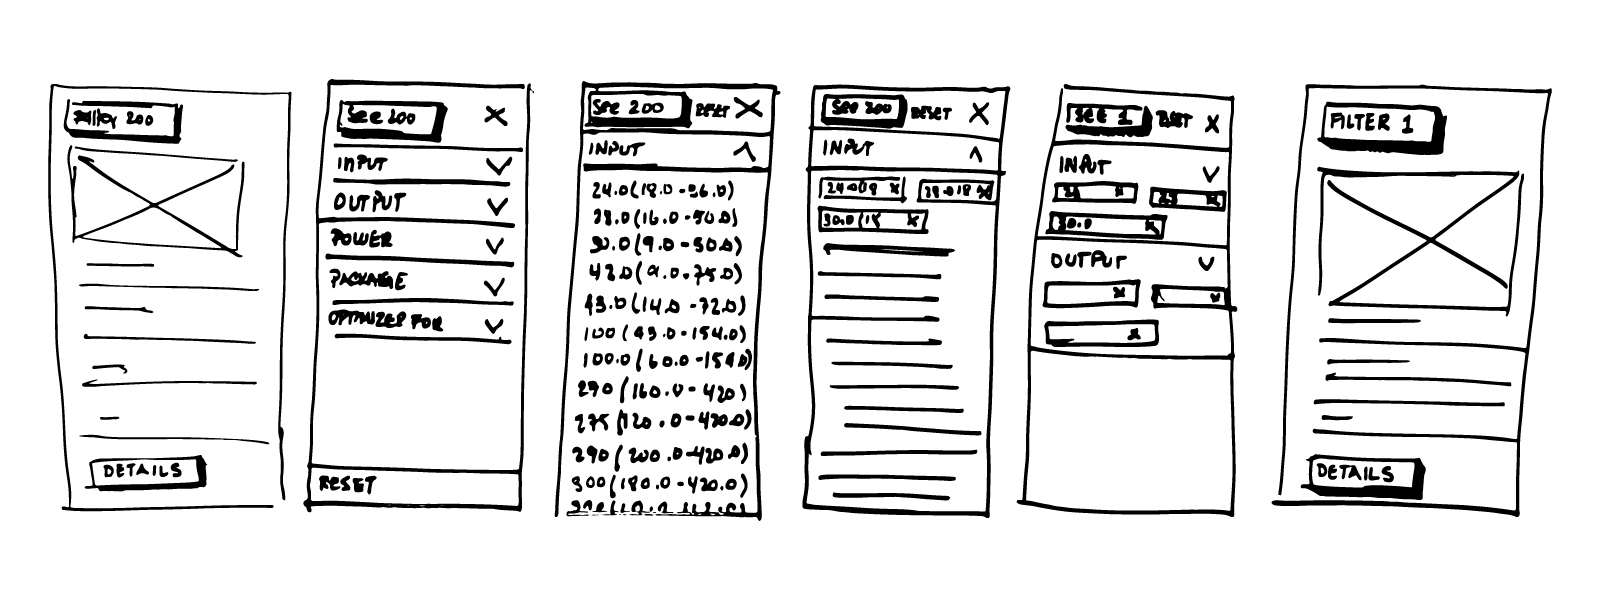 200
DETAILS
See 200
INPUT
OUTPUT
POWER
PACKAGE
OPTIMIZED FOR
RESET
See 200 RESET
INPUT
24.0(18.0-36.0)
28.0(16.0-50.0)
30.0(9.0-50.0)
42.0(9.0-75.0)
43.0(14.0-72.0)
100(43.0-154.0)
100.0(60.0-154.0)
270(160.0-420)
275(120.0-420.0)
290(200.0-420.0)
300(180.0-420.0)
See 200 RESET
INPUT
30.0(14
See 1 RESET
INPUT
30.0
OUTPUT
FILTER 1
DETAILS